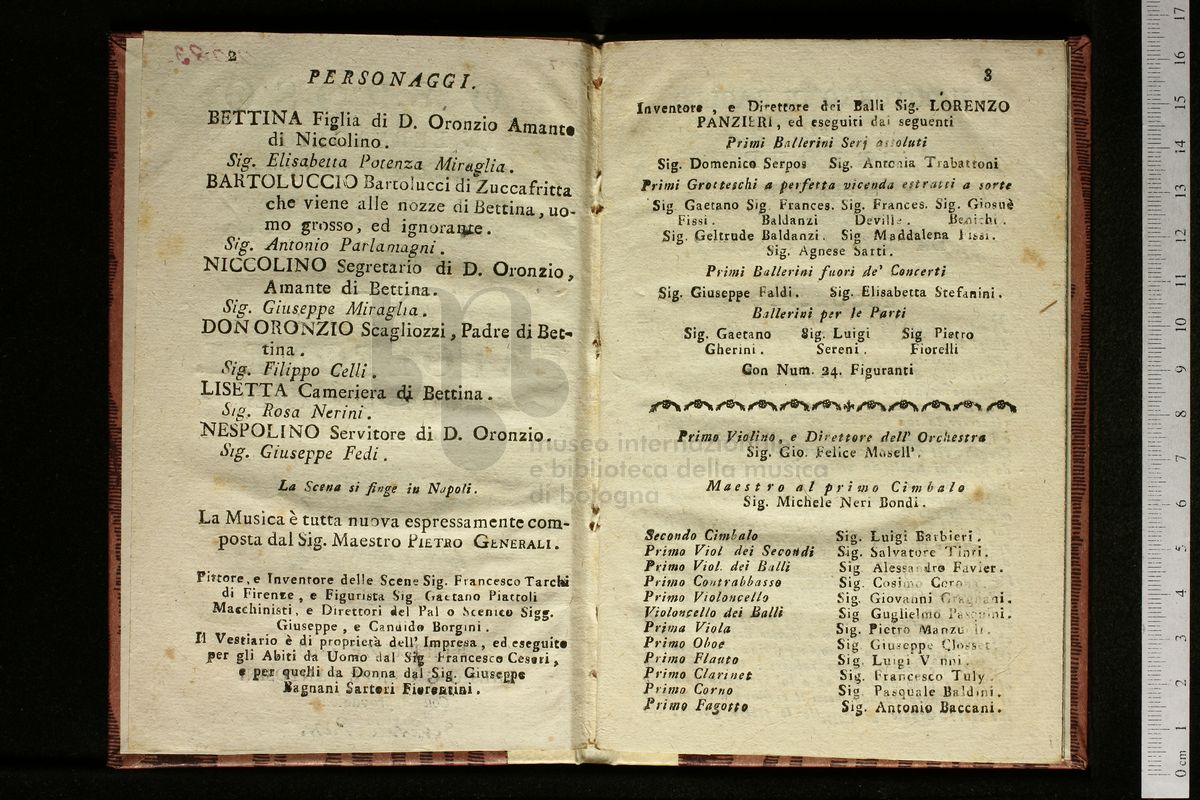 2
PERSONAGGI.
BETTINA Figlia di D. Oronzio Amante
di Niccolino.
Sig. Elisabetta Potenza Miraglia.
BARTOLUCCIO Bartolucci di Zuccafritta
che viene alle nozze di Bettina, uo-
mo grosso, ed ignorante.
Sig. Antonio Parlamagni.
NICCOLINO Segretario di D. Oronzio,
Amante di Bettina.
Sig. Giuseppe Miraglia.
DON ORONZIO Scagliozzi, Padre di Bet-
tina.
Sig. Filippo Celli.
LISETTA Cameriera di Bettina.
Sig. Rosa Nerini.
NESPOLINO Servitore di D. Oronzio.
Sig. Giuseppe Fedi.
La Scena si finge in Napoli.
La Musica è tutta nuova espressamente com-
posta dal Sig. Maestro PIETRO GENERALI.
Pittore, e Inventore delle Scene Sig. Francesco Tarchi
di Firenze, e Figurista Sig. Gaetano Piattoli
Macchinisti, e Direttori del Pal o Scenico Sigg.
Giuseppe, e Candido Borgini.
Il Vestiario è di proprietà dell' Impresa, ed eseguito
per gli Abiti da Uomo dal Sig Francesco Ceseri,
e per quelli da Donna dal Sig. Giuseppe
Bagnani Sartori Fiorentini.
3
Inventore, e Direttore dei Balli Sig. LORENZO
PANZIERI, ed eseguiti dai seguenti
Primi Ballerini Serj assoluti
Sig. Domenico Serpos Sig. Antonia Trabattoni
Primi Grotteschi a perfetta vicenda estratti a sorte
Sig Gaetano Sig. Frances. Sig. Frances. Sig. Giosuè
Fissi. Baldanzi Deville. Benichi.
Sig. Geltrude Baldanzi. Sig Maddalena Fissi.
Sig. Agnese Sarti.
Primi Ballerini fuori de' Concerti
Sig. Giuseppe Faldi. Sig. Elisabetta Stefanini.
Ballerini per le Parti
Sig. Gaetano Sig. Luigi Sig. Pietro
Gherini. Sereni. Fiorelli
Con Num. 24. Figuranti
Primo Violino, e Direttore dell' Orchestra
Sig. Gio. Felice Mosell'.
Maestro al primo Cimbalo
Sig. Michele Neri Bondi.
Secondo Cimbalo Sig. Luigi Barbieri.
Primo Viol dei Secondi Sig. Salvatore Tinti.
Primo Viol. dei Balli Sig Alessandro Favier.
Primo Contrabbasso Sig. Cosimo
Primo Violoncello Sig. Giovanni Gragnani.
Violoncello dei Balli Sig Guglielmo Pasquini.
Prima Viola Sig. Pietro
Primo Oboe Sig. Giuseppe Closset
Primo Flauto Sig. Luigi
Primo Clarinet Sig. Francesco Tuly.
Primo Corno Sig. Pasquale Baldini.
Primo Fagotto Sig. Antonio Baccani.
museo internazionale
e biblioteca della musica
di bologna
0 cm 1 2 3 4 5 6 7 8 9 10 11 12 13 14 15 16 17